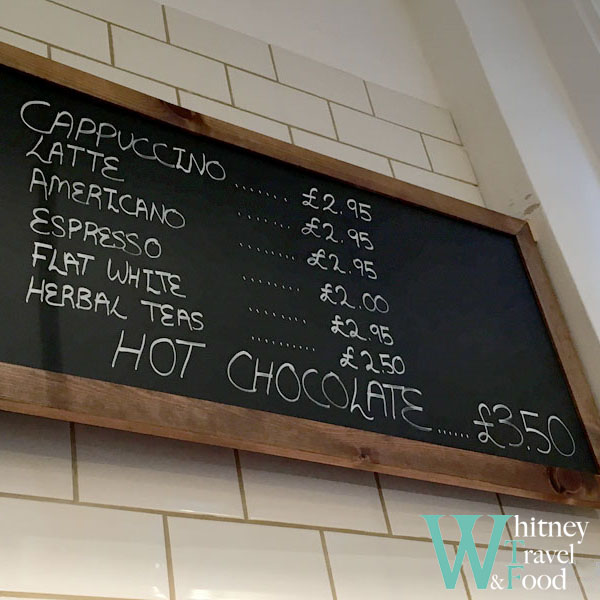 CAPPUCCINO ....... £2.95
LATTE ........ £2.95
AMERICANO ........ £2.95
ESPRESSO ........ £2.00
FLAT WHITE ........ £2.95
HERBAL TEAS .......... £2.50
HOT CHOCOLATE ...... £3.50
Whitney
Travel
&Food